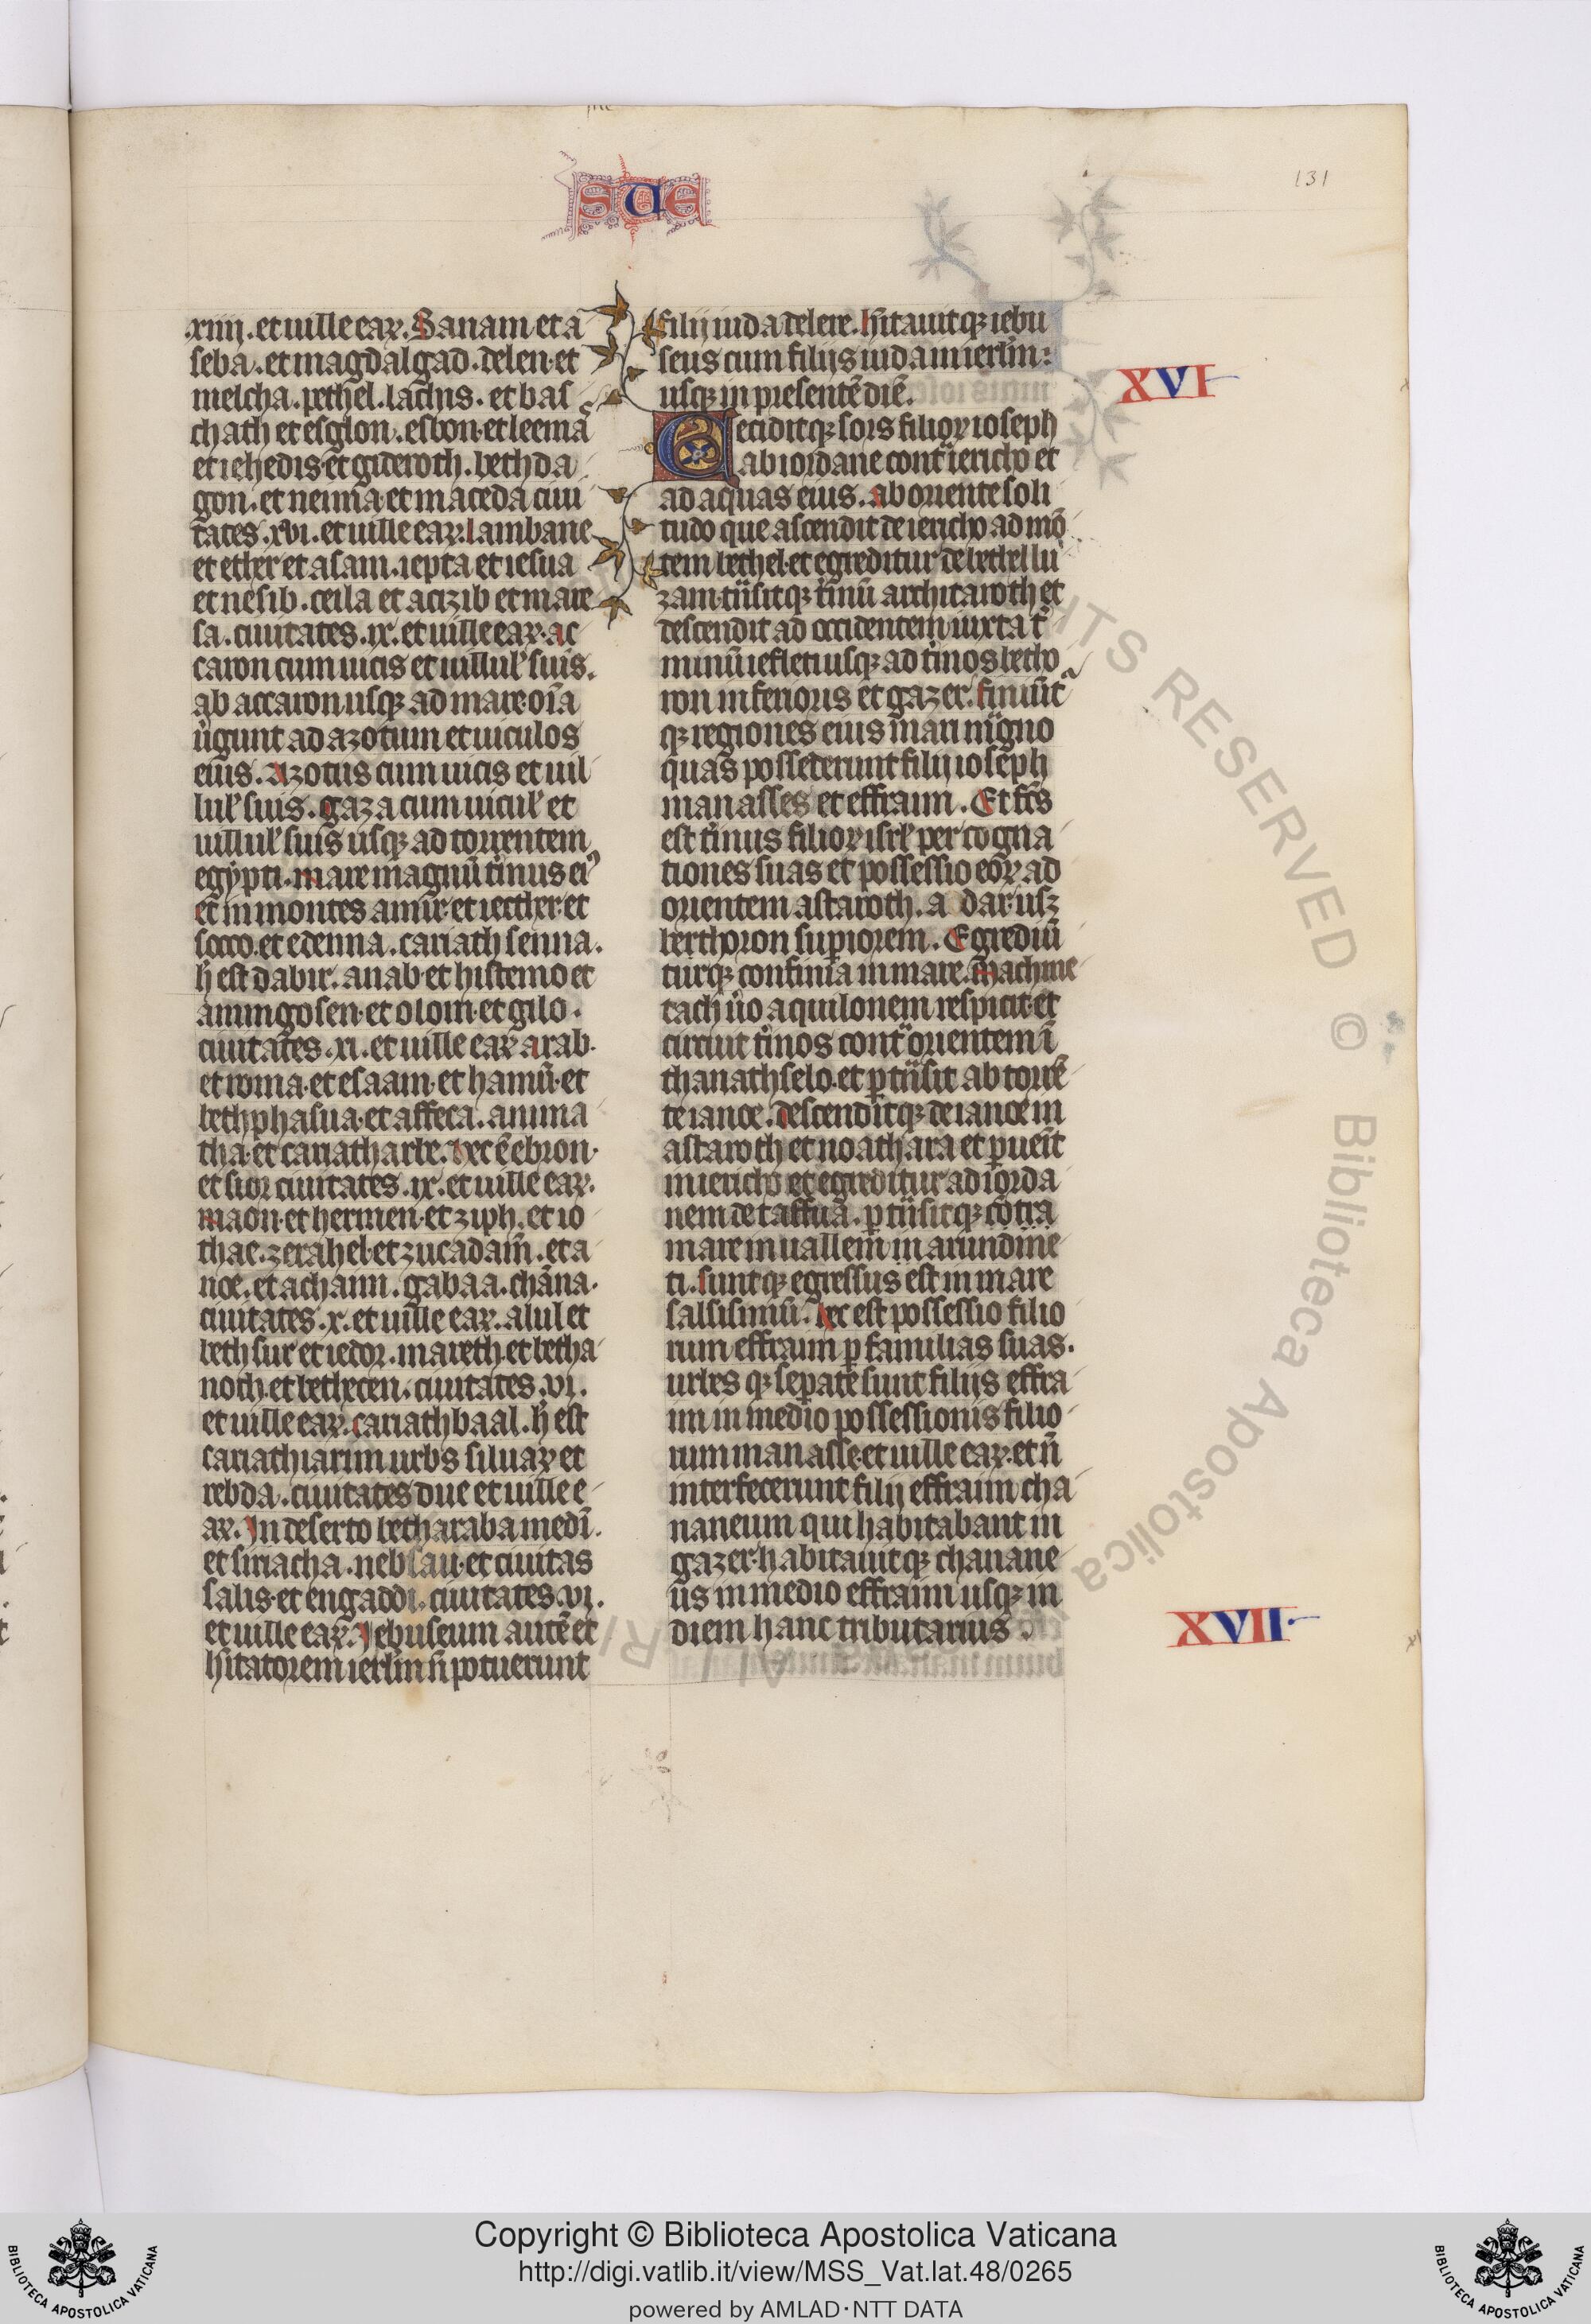 SUE
131
.xiiii. et uille eaꝝ. Sanam et a
seba. et magdalgad. delen. et
melcha. pethel. lachis. et bas
chath et esglon. esbon. et leema
et iehedis. et gideroth. bethda
gon. et neima. et maceda ciui
tates .xvi. et uille eaꝝ. lambane
et ether et asam. iepta et iesua
et nesib. ceila et acizib et mare
sa. ciuitates .ix. et uille eaꝝ. ac
caron cum uicis et uillul' suis.
ab accaron usqꝫ ad mare. oīa
u̓gunt ad azotum et uiculos
eius. Azotus cum uicis et uil
lul' suis. gaza cum uicul' et
uillul' suis usqꝫ ad torrentem
egypti. mare magnū t̓inus eiꝰ
et in montes amir. et iecther. et
socco. et edenna. cariath senna.
h̓ est dabir. anab. et histemo et
anim gosen. et olom. et gilo.
ciuitates .xi. et uille eaꝝ arab.
et roma. et esaam. et hamū. et
bethphasua. et affeca. amma
tha. et cariatharbe. hec ē ebron.
et sior ciuitates .ix. et uille eaꝝ.
maon. et hermen. et ziph. et io
thae. zerahel. et zucadam̄. et a
noe. et achaim. gabaa. chāna.
ciuitates .x. et uille eaꝝ. alul et
bethsur et iedor. mareth. et betha
noth. et bethecen. ciuitates .vi.
et uille eaꝝ. cariathbaal. h̓ est
cariathiarim urbs siluaꝝ et
rebda. ciuitates due et uille e
aꝝ. In deserto betharaba medī.
et siriacha. nebsan. et ciuitas
salis. et engaddi. ciuitates .vi.
et uille eaꝝ. Iebuseum autē et
hītatorem ierl̄m n̄ potuerunt
filij iuda delere. hītauitqꝫ iebu
seus cum filijs iuda in ierl̄m:
usqꝫ in presentē diē.
XVI
Ceciditqꝫ sors filioꝝ ioseph
ab iordane cont̾ iericho et
ad aquas eius. ab oriente soli
tudo que ascendit de iericho ad mō
tem bethel. et egreditur de bethel lu
zam. t̾nsitqꝫ t̓inū architaroth et
descendit ad occidentem iuxta t̓
minū iefleti usqꝫ ad t̓inos betho
ron inferioris et gazer. finiūt̾
qꝫ regiones eius mari mͣgno
quas possederunt filij ioseph
manasses et effraim. Et fc̄s
est t̓inus filioꝝ isrl̓ per cogna
tiones suas et possessio eoꝝ ad
orientem astaroth. a dar. usꝫ
berthoron suꝑiorem. Egrediū
turqꝫ confinia in mare. Machme
tach u̓o aquilonem respicit. et
circuit t̓inos cont̾ orientem ī
thanathselo. et ꝑt̾nsit ab torrē
te iance. descenditqꝫ de iance in
astaroth et noathara et ꝑuen̄it
in iericho et egreditur ad iorda
nem de taffua. ꝑt̾nsitqꝫ cōtra
mare in uallem in arundine
ti. suntqꝫ egressus est in mare
salsisimū. hec est possessio filio
rum effraim ꝑ familias suas.
urbes qꝫ seꝑate sunt filijs effra
im in medio possessionis filio
rum manasse. et uille eaꝝ. et n̄
interfecerunt filij effraim cha
naneum qui habitabant in
gazer. habitauitqꝫ chanane
us in medio effraim usqꝫ in
diem hanc tributarius.
XVII.
ALL RIGHTS RESERVED © Biblioteca Apostolica
Copyright © Biblioteca Apostolica Vaticana
http://digi.vatlib.it/view/MSS_Vat.lat.48/0265
powered by AMLAD·NTT DATA
BIBLIOTECA APOSTOLICA VATICANA
BIBLIOTECA APOSTOLICA VATICANA